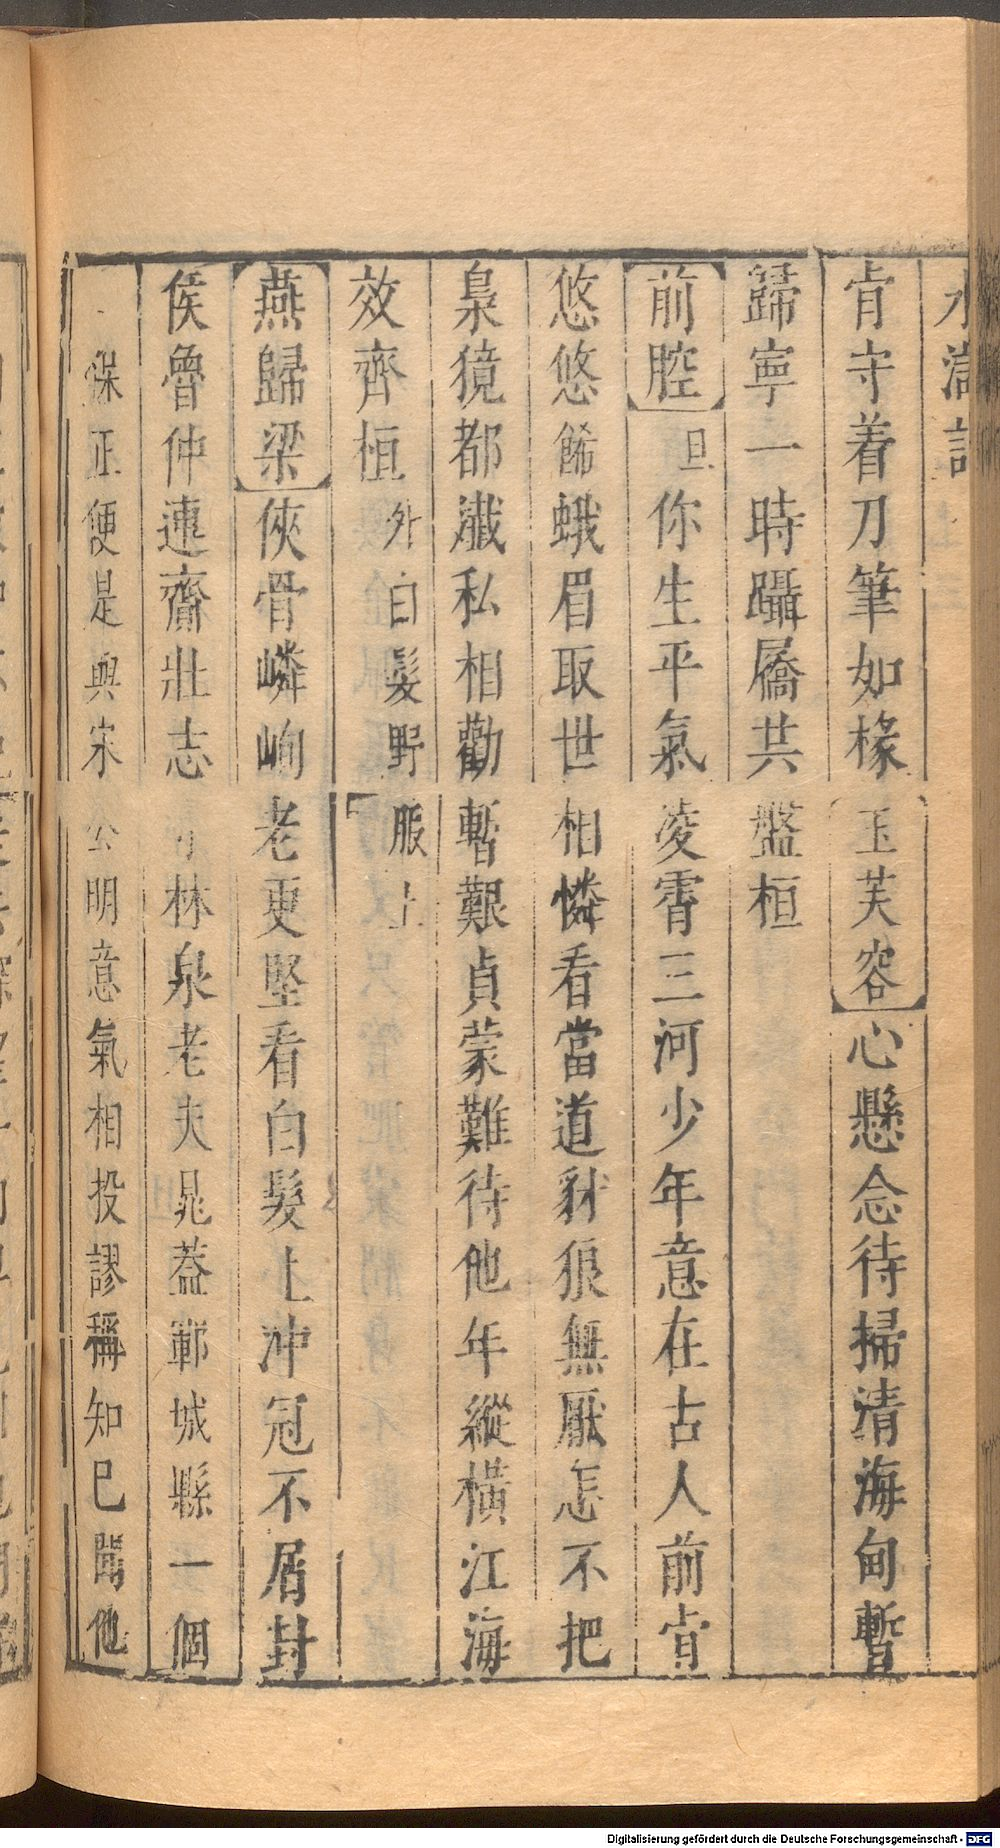 水滸記
肯守着刀筆如椽〔玉芙容〕心懸念待掃清海甸暫
歸寧一時躡屩共盤桓
〔前腔〕旦你生平氣凌霄三河少年意在古人前肯
悠悠餙蛾眉取世相憐看當道豺狼無厭怎不把
梟獍都瀸私相勸暫艱貞蒙難待他年縱橫江海
效齊桓外白髮野服上
〔燕歸梁〕俠骨嶙峋老更堅看白髮上沖冠不屑封
侯魯仲連齋壯志林泉老夫晁葢鄆城縣一個
保正便是與宋公明意氣相投謬稱知已聞他
Digitalisierung gefördert durch die Deutsche Forschungsgemeinschaft - DFG